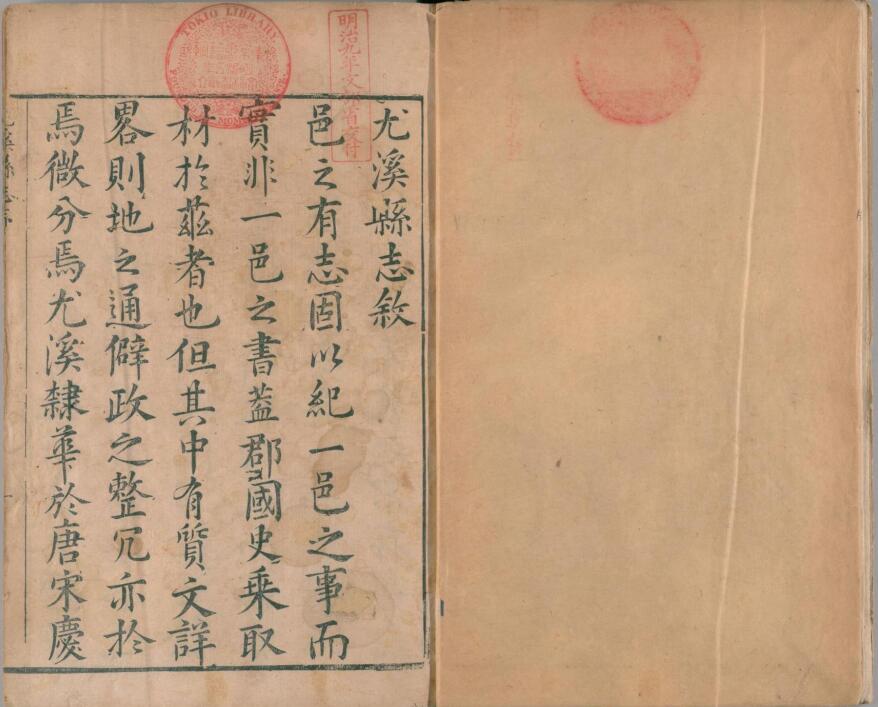 尤溪縣志敘
邑之有志固以紀一邑之事而
實非一邑之書蓋郡國史乗取
材扵茲者也但其中有質文詳
畧則地之通僻政之整冗亦扵
焉微分焉尤溪隸華於唐宋慶
尤溪縣志序
TOKIO LIBRARY
明治九年文部省交付